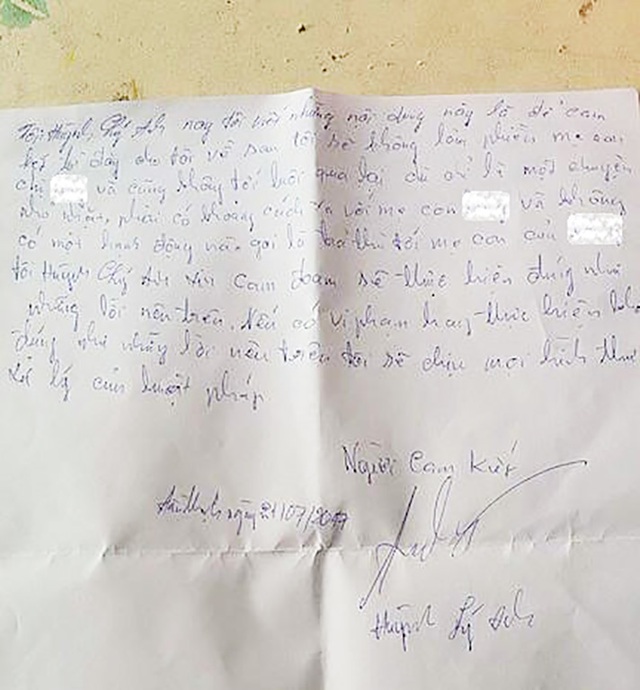 Tôi Huỳnh Chý Anh nay tôi viết những nội dung này là để cam
kết từ đây cho tôi về sau tôi sẽ không làm phiền mẹ con
chị và cũng không tới lui qua lại dù chỉ là một chuyện
nhỏ nhặt, phải có khoảng cách xa với mẹ con và không
có một hành động nào gọi là trả thù tới mẹ con của
tôi Huỳnh Chý Anh xin cam đoan sẽ thực hiện đúng như
những lời nêu trên. Nếu có vi phạm hay thực hiện
đúng như những lời nêu trên tôi sẽ chịu mọi hình thức
xử lý của luật pháp
Người Cam Kết
ngày 21/07/2017
Huỳnh Lý Anh